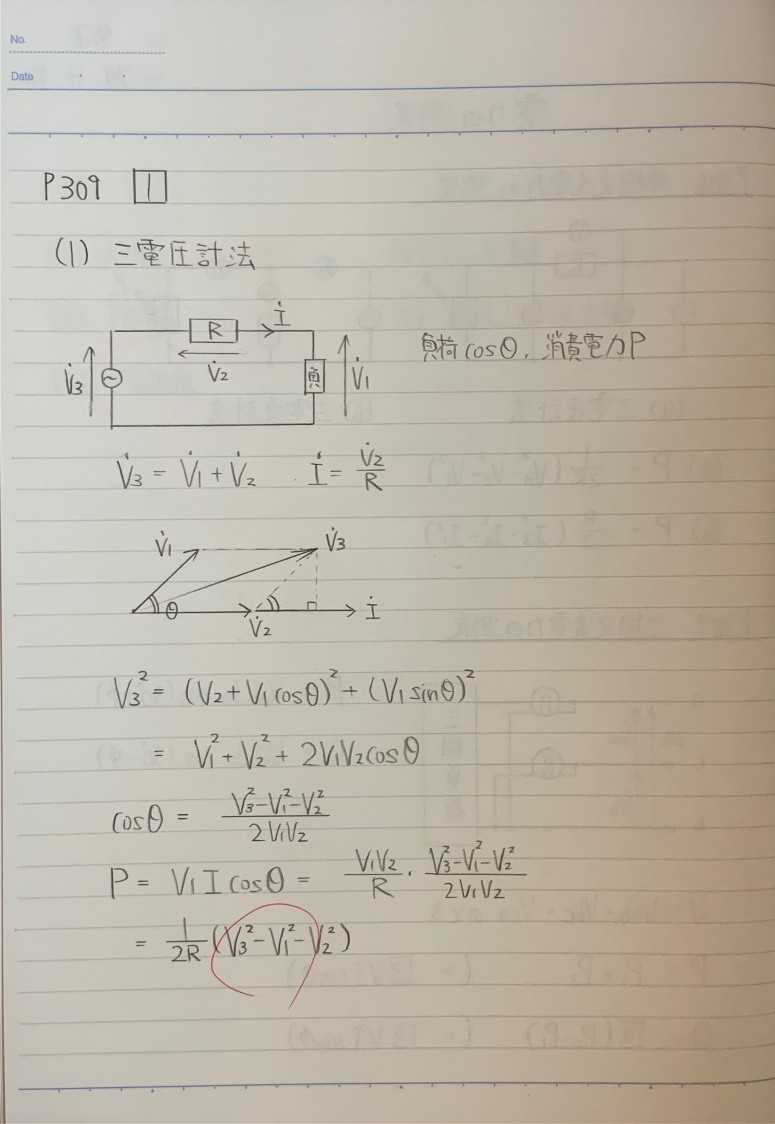 No.
Date
P309 1
(1) 三電圧計法
R İ
V̇3 V̇2 負 V̇1
負荷cosθ, 消費電力P
V̇3 = V̇1 + V̇2 İ = V̇2/R
V̇1 V̇3
θ V̇2 İ
V3² = (V2+V1cosθ)² + (V1sinθ)²
= V1² + V2² + 2V1V2cosθ
cosθ = (V3²-V1²-V2²)/(2V1V2)
P = V1 I cosθ = V1V2/R · (V3²-V1²-V2²)/(2V1V2)
= 1/2R (V3²-V1²-V2²)